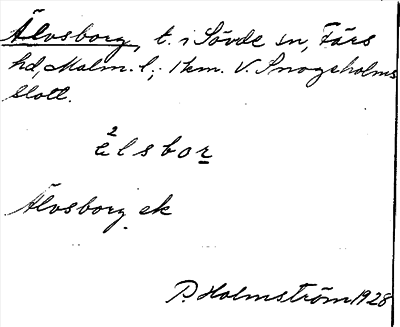 Älvsborg, t. i Sövde sn, Färs
hd, Malm. l.; 1 km. V. Snogeholms
slott.
2
èlsbor
Älvsborg ek
P. Holmström 1928